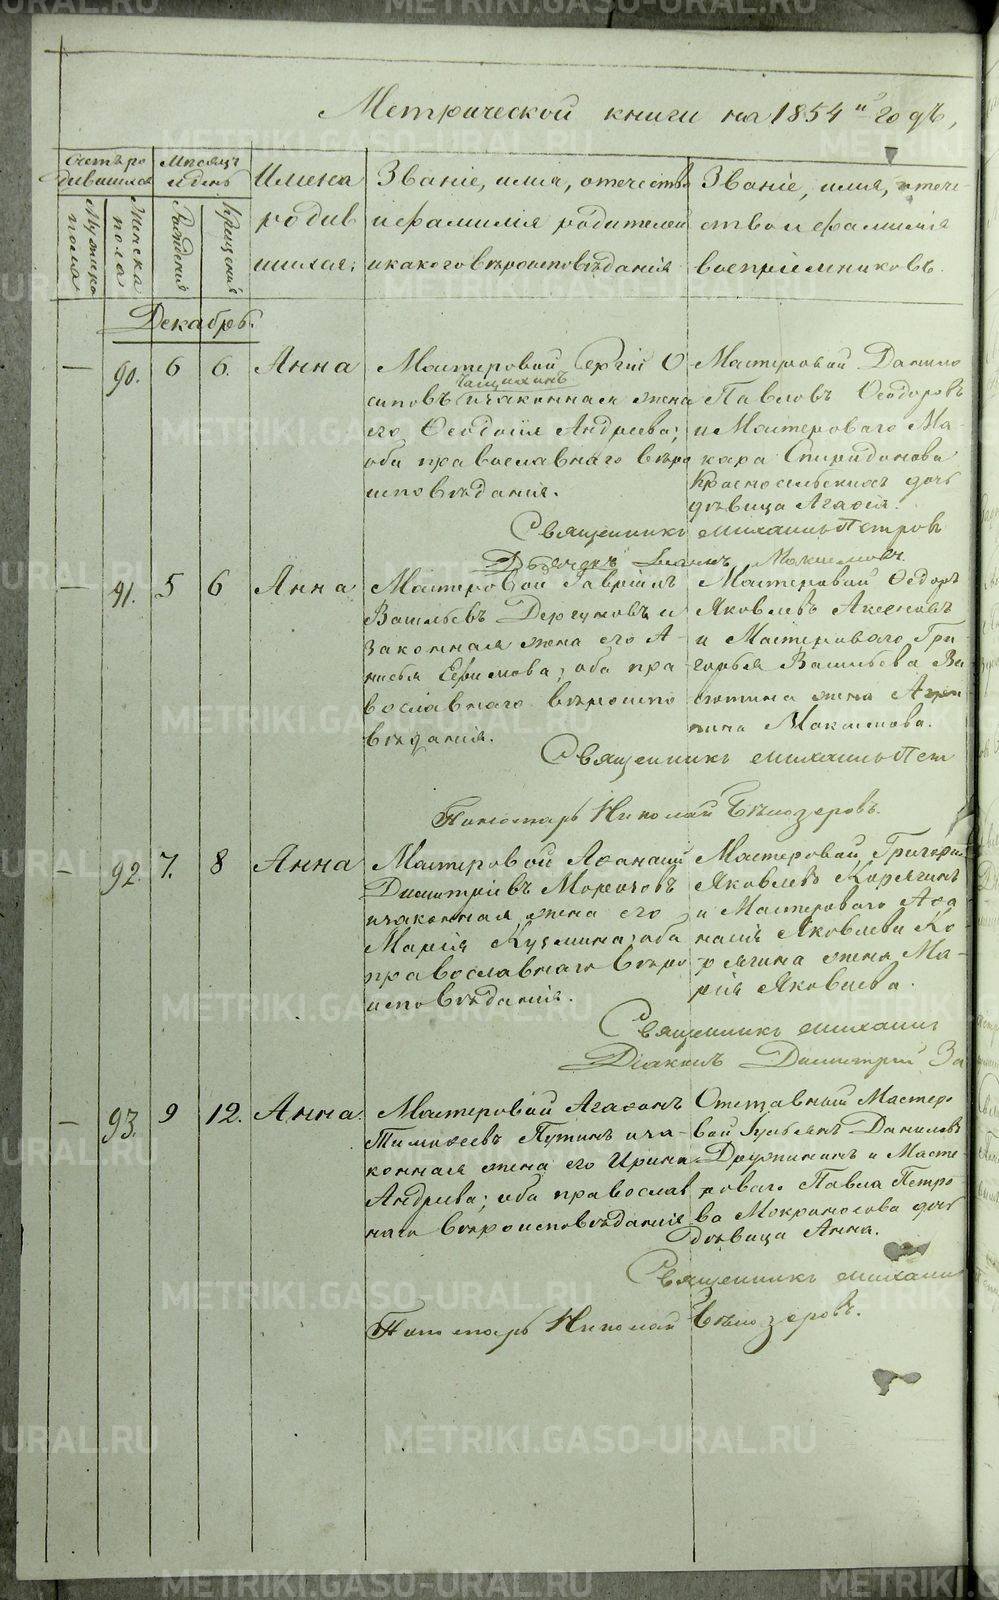 Метрической книги на 1854й годъ,
Счетъ ро
дившихся
Мѣсяцъ
и день
Имена
родив
шихся.
Званіе, имя, отечество
и фамилія родителей
и какого вѣроисповѣданія
Званіе, имя, отече-
ство и фамилія
воспріемниковъ.
Мужска
пола
Женска
пола
Рожденія
Крещенія
Декабрь.
— 90. 6 6. Анна
Мастеровой Сергій О
сиповъ и законная жена
его Ѳеодосія Андреева;
оба православнаго вѣро
исповѣданія.
Мастеровой Данило
Павловъ Ѳеодоровъ
и Мастероваго Ма-
кара Спиридонова
Красносельскихъ дочь
дѣвица Агафія.
Священникъ Михаилъ Петров
Дьячекъ Іоаннъ
— 91. 5 6 Анна
Мастеровой Гавріилъ
Васильевъ Дергуновъ и
законная жена его А-
нисья Ефимова; оба пра-
вославнаго вѣроиспо
вѣданія.
Мастеровой Ѳедоръ
Яковлевъ Аксеновъ
и Мастероваго Гри-
горья Васильева Ва
сютина жена Агри
пина Максимова.
Священникъ Михаилъ Пет
Пономарь Николай Бѣлозеровъ.
— 92. 7. 8 Анна
Мастеровой Аѳанасій
Димитріевъ Морозовъ
и законная жена его
Марія Кузмина; оба
православнаго вѣро
исповѣданія.
Мастеровой Григорій
Яковлевъ Корягинъ
и Мастероваго Аѳа
насія Яковлева Ко-
рягина жена Ма-
рія Яковлева.
Священникъ Михаилъ
Діаконъ Димитрій За
— 93. 9 12. Анна.
Мастеровой Агафонъ
Тимофеевъ Путинъ и за-
конная жена его Ирина
Андреева; оба православ
наго вѣроисповѣданія
Отставный Масте-
вой Даниловъ
Дружининъ и Масте-
роваго Павла Петро
ва Мокроносова дочь
дѣвица Анна.
Священникъ Михаилъ
Пономарь Николай Бѣлозеровъ.
METRIKI.GASO-URAL.RU